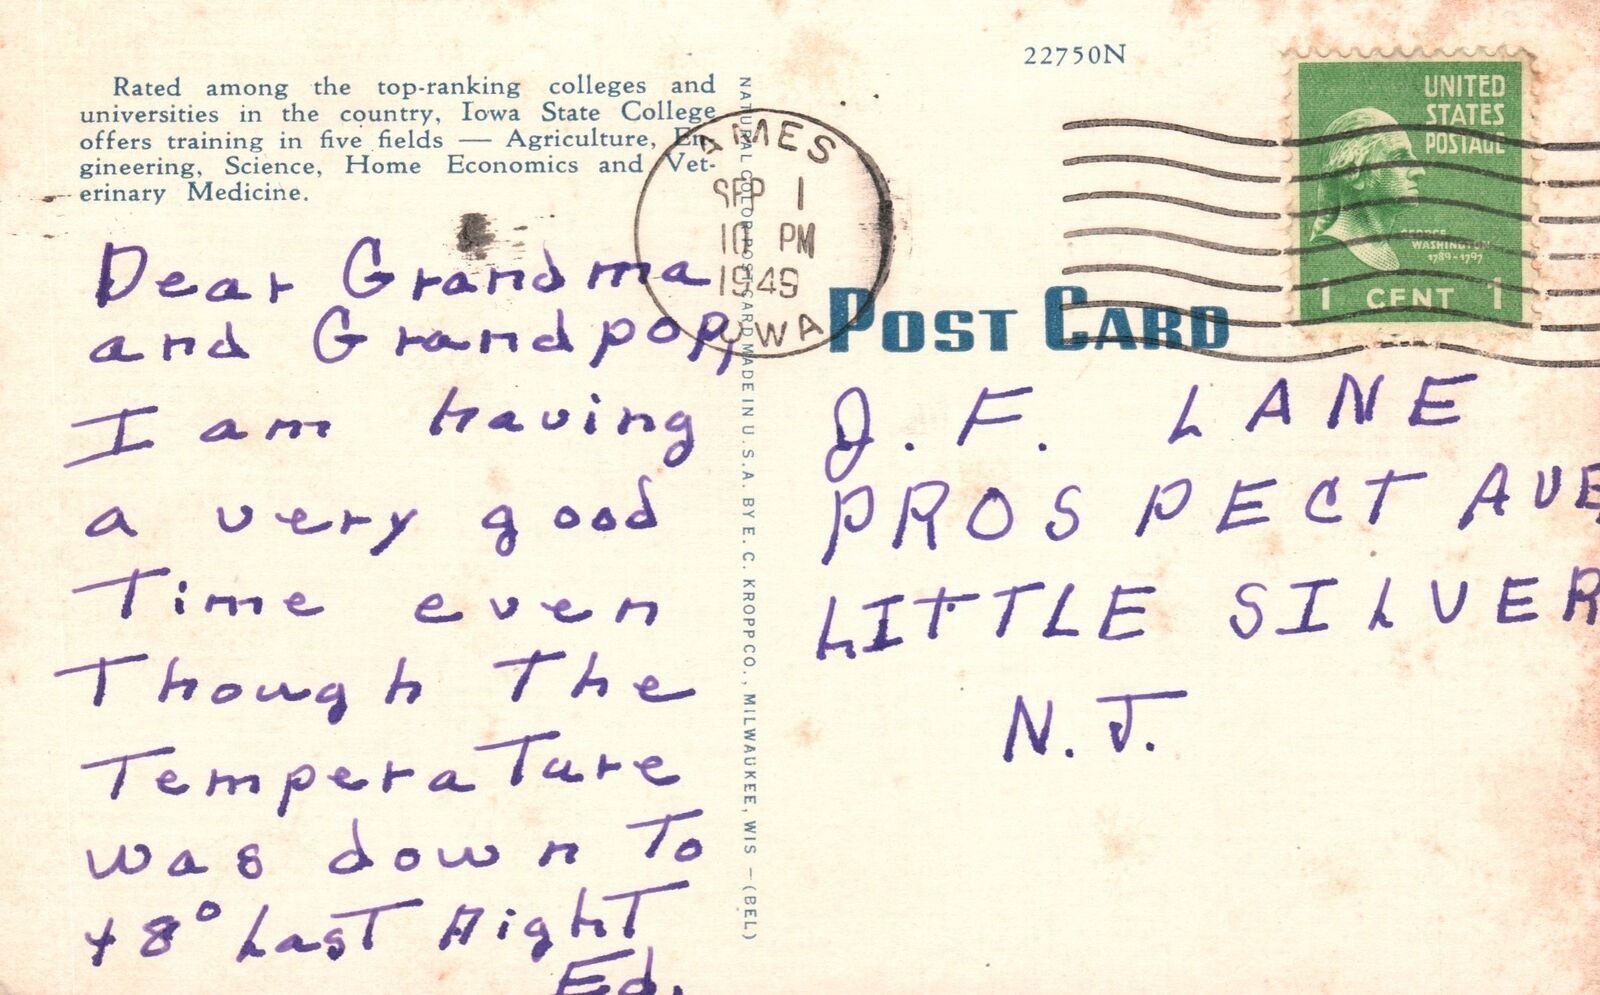 Rated among the top-ranking colleges and
universities in the country, Iowa State College
offers training in five fields — Agriculture, En-
gineering, Science, Home Economics and Vet-
erinary Medicine.
Dear Grandma
and Grandpop,
I am having
a very good
Time even
Though The
TemperaTure
was down To
48° LasT NighT
Ed.
NATURAL COLOR POST CARD MADE IN U. S. A. BY E. C. KROPP CO., MILWAUKEE, WIS — (BEL)
AMES
SEP 1
10 PM
1949
IOWA
22750N
UNITED
STATES
POSTAGE
GEORGE
WASHINGTON
1789-1797
1 CENT 1
POST CARD
J. F. LANE
PROSPECT AVE
LITTLE SILVER
N. J.